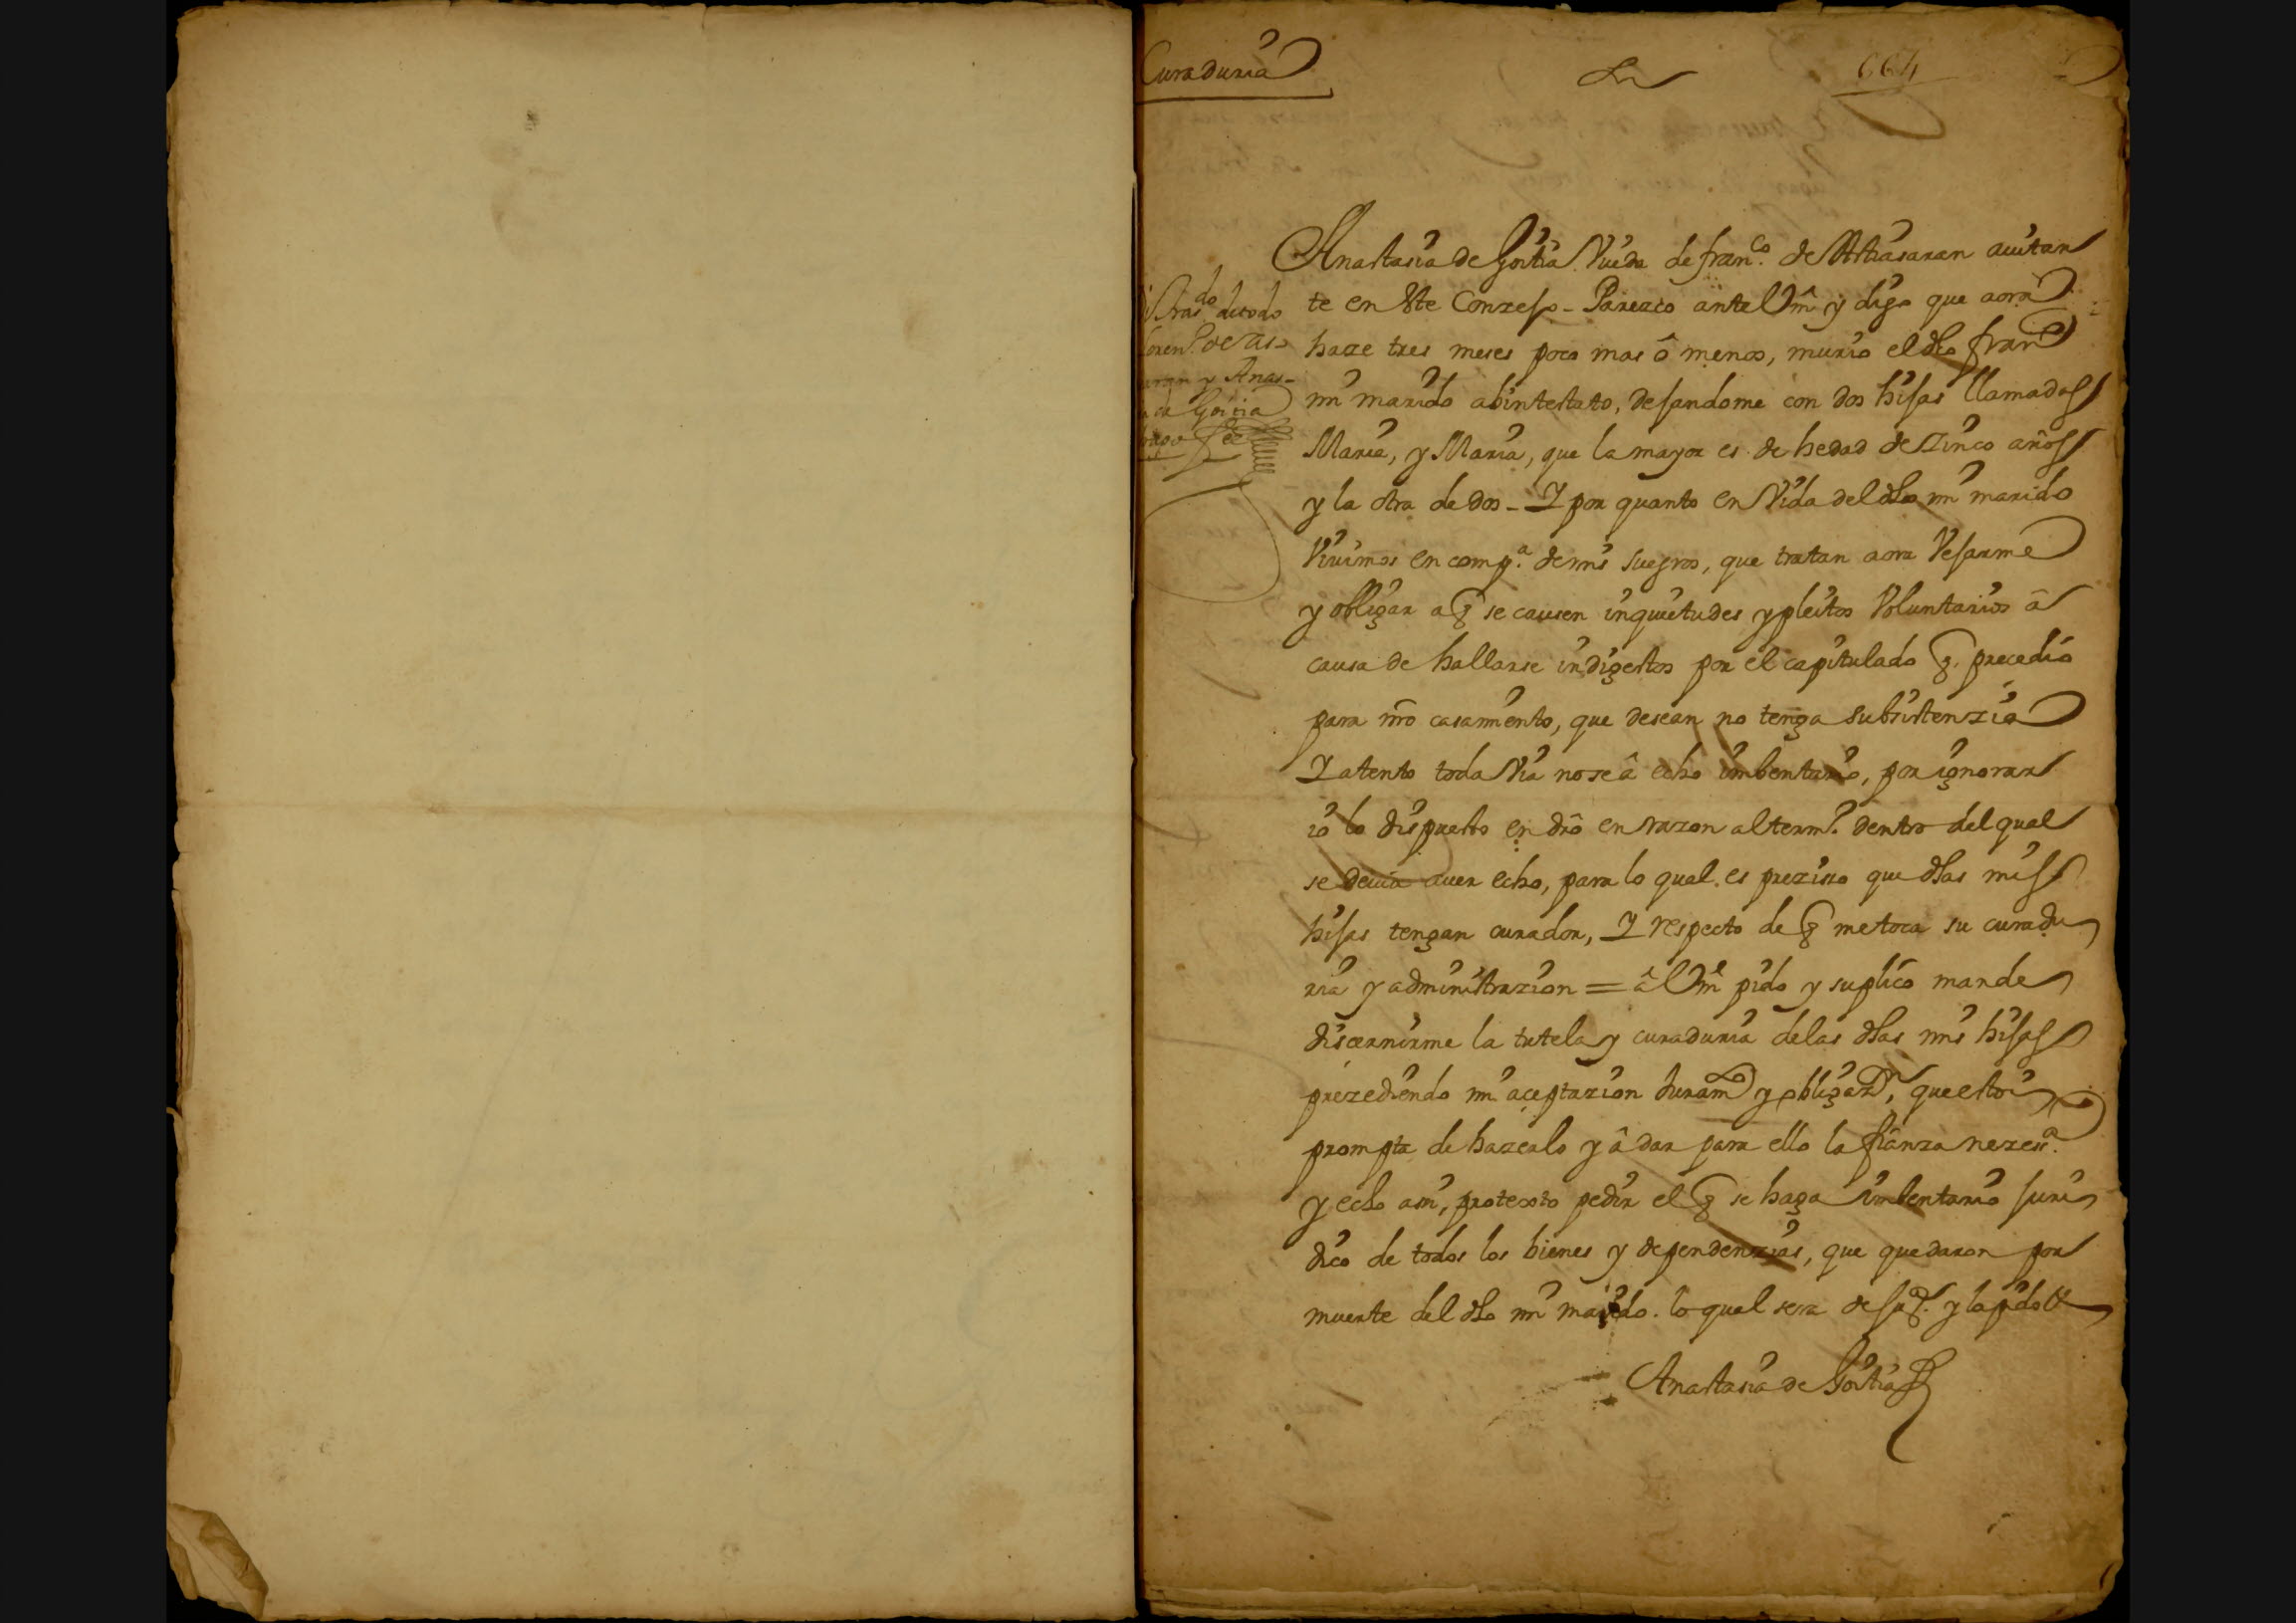 Curaduria
664
Anastasia de Goitia Viuda de fran.co de Astiasaran auitan
te en Este Conzejo - Parezco ante Vm y digo que aora
haze tres meses poco mas ô menos, murio el dho fran.co
mi marido abintestato, dejandome con dos hijas llamadas
Maria, y Maria, que la mayor es de hedad de Zinco años
y la otra de dos - Y por quanto en Vida del dho mi marido
Viuimos en comp.a de mis suegros, que tratan aora Vejarme
y obligar a q se causen inquietudes y pleitos Voluntarios â
causa de hallarse indigestos por el capitulado q. precedio
para nro casamiento, que desean no tenga subsistenzia
Y atento toda Via no se â echo imbentario, por ignorar
io lo dispuesto en dro en razon al termº dentro del qual
se deuia auer echo, para lo qual es preziso que dhas mis
hijas tengan curador, Y respecto de q me toca su curadu
ria y administrazion = â Vm pido y suplico mande
discernirme la tutela y curaduria de las dhas mis hijas
prezediendo mi aceptazion juramto y obligazn, que estoi
prompta de hazerlo y â dar para ello la fianza nezes.a
y echo asi, protexto pedir el q se haga imbentario juri
dico de todos los bienes y dependenzias, que quedaron por
muerte del dho mi marido. lo qual sera de jus.a y la pido Vt
Anastasia de Goitia
do de todo
Loren.o de As-
aran y Anas-
a de Goitia
Fee